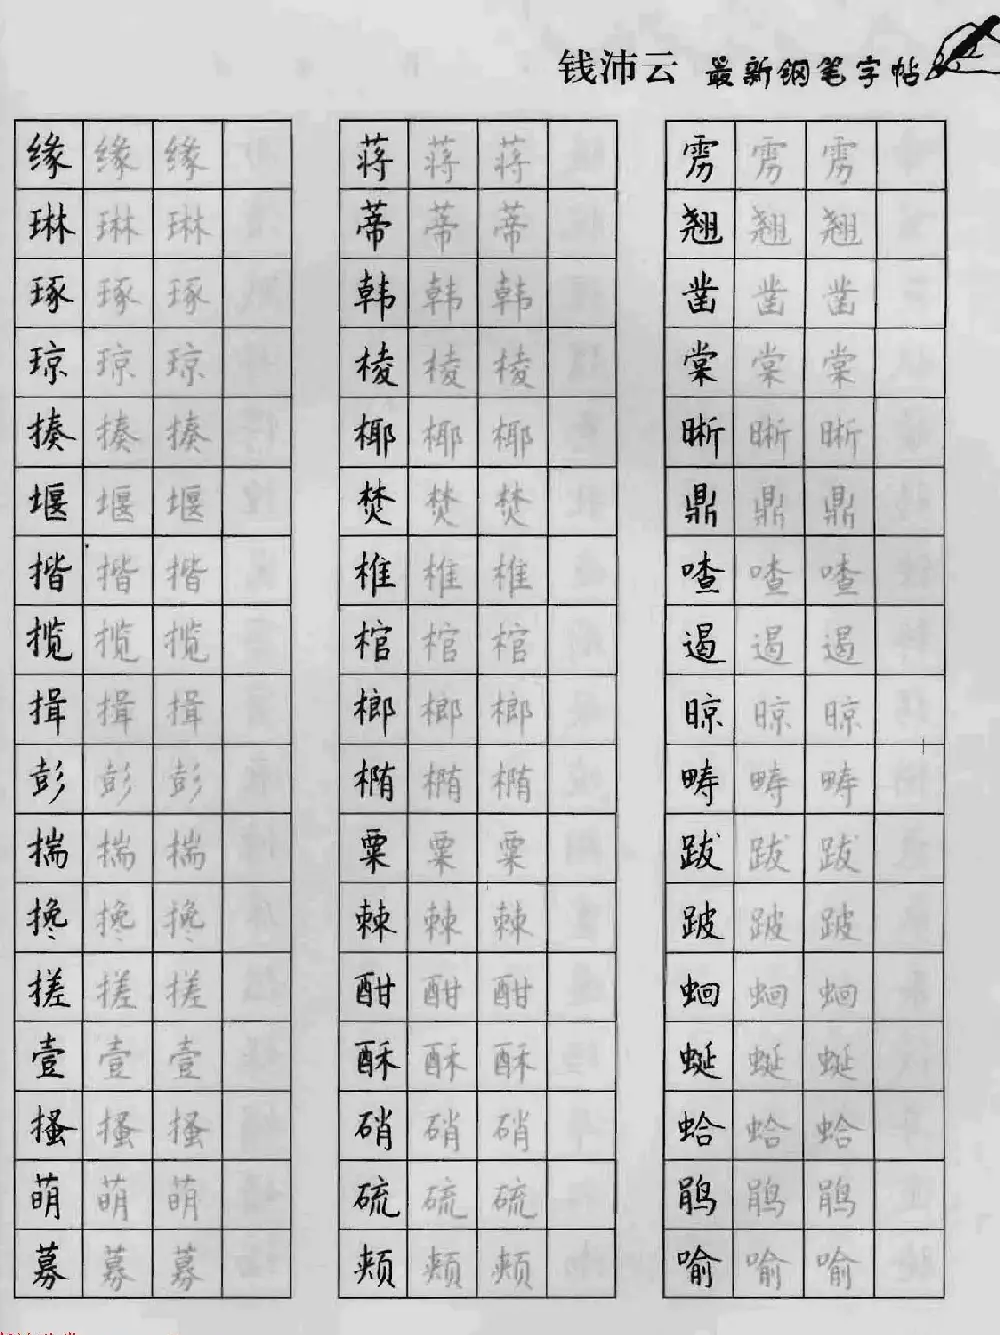 钱沛云 最新钢笔字帖
缘缘缘 蒋蒋蒋 雳雳雳
琳琳琳 蒂蒂蒂 翘翘翘
琢琢琢 韩韩韩 凿凿凿
琼琼琼 棱棱棱 棠棠棠
揍揍揍 椰椰椰 晰晰晰
堰堰堰 焚焚焚 鼎鼎鼎
揩揩揩 椎椎椎 喳喳喳
揽揽揽 棺棺棺 遏遏遏
揖揖揖 榔榔榔 晾晾晾
彭彭彭 椭椭椭 畴畴畴
揣揣揣 粟粟粟 跋跋跋
搀搀搀 棘棘棘 跛跛跛
搓搓搓 酣酣酣 蛔蛔蛔
壹壹壹 酥酥酥 蜒蜒蜒
搔搔搔 硝硝硝 蛤蛤蛤
萌萌萌 硫硫硫 鹃鹃鹃
募募募 颊颊颊 喻喻喻